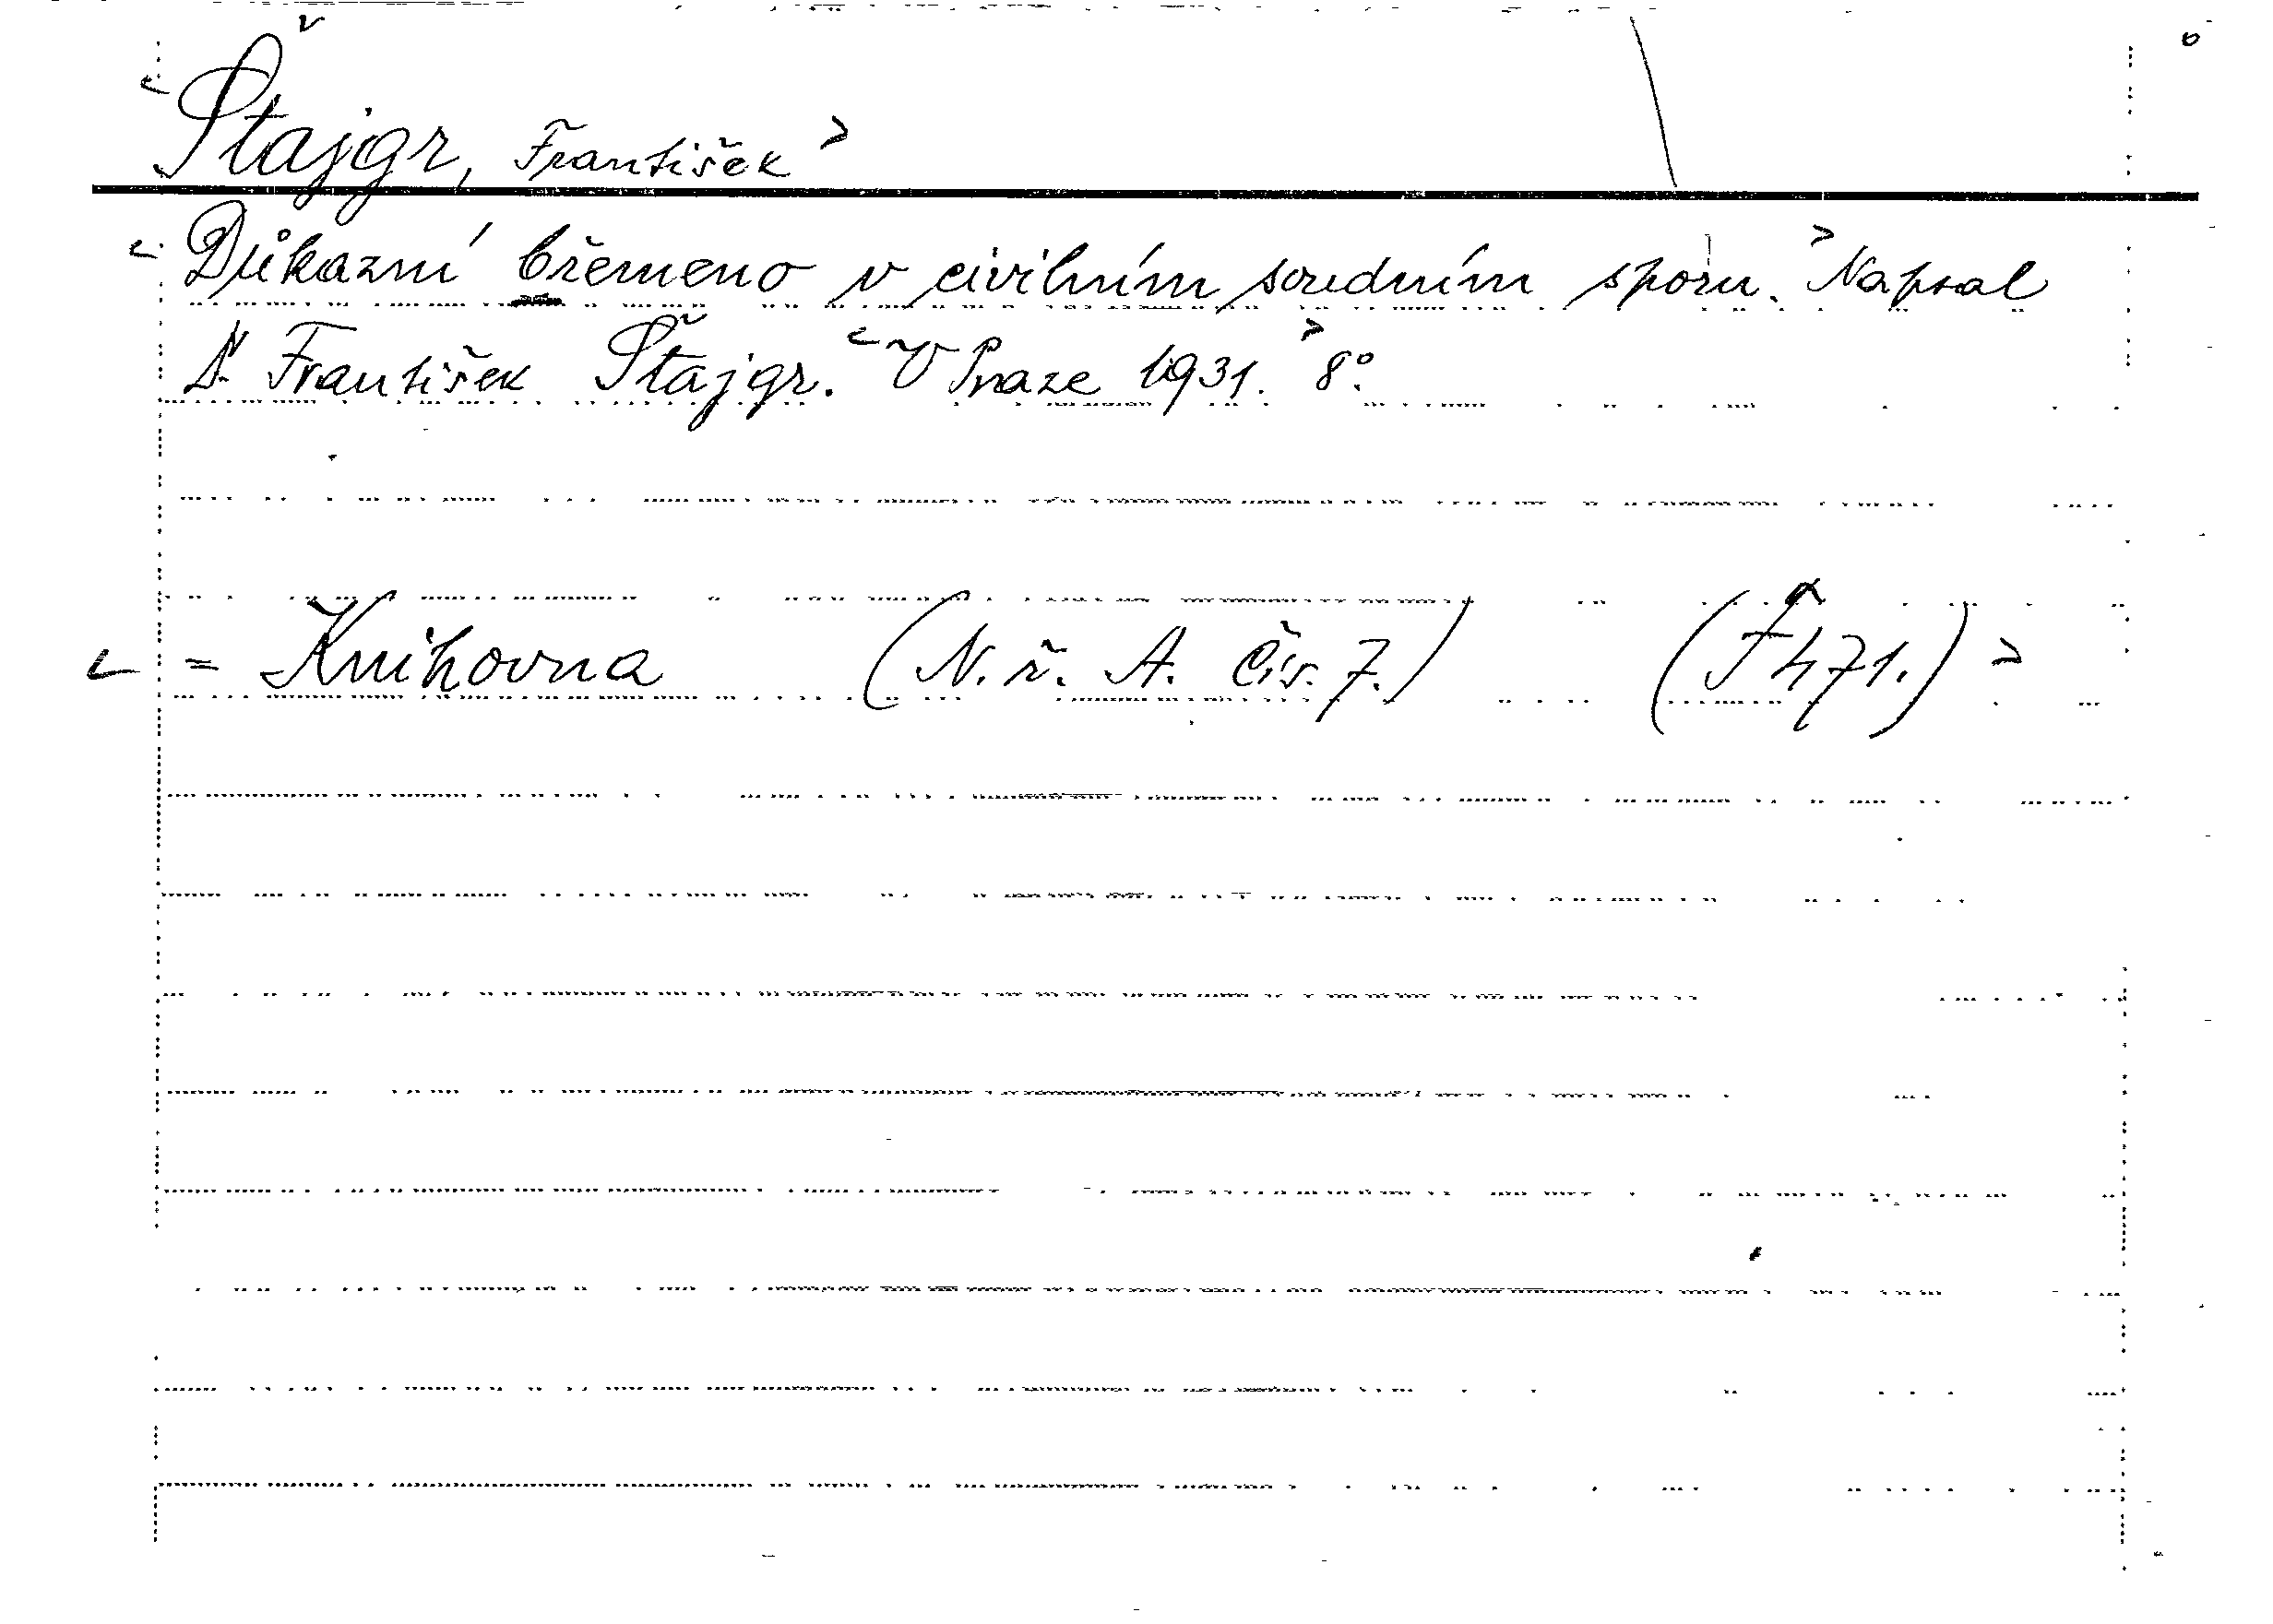 Štajgr, František
Důkazní břemeno v civilním soudním sporu. Napsal
Dr. František Štajgr. V Praze 1931. 8°.
= Knihovna (N. ř. A. čís. 7.) (F 471.)